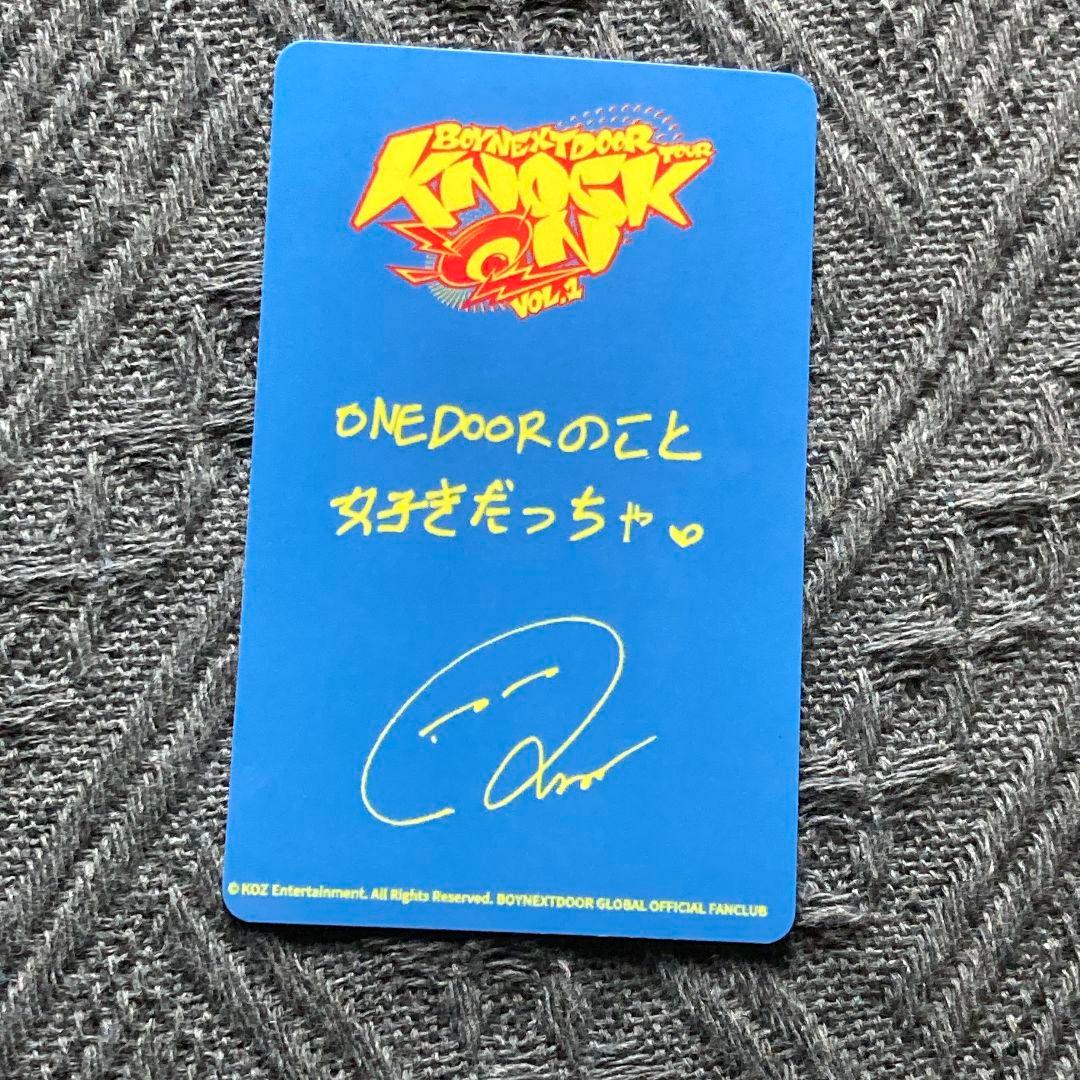 BOYNEXTDOOR TOUR
KNOCK
ON
VOL.1
ONEDOORのこと
好きだっちゃ
© KOZ Entertainment. All Rights Reserved. BOYNEXTDOOR GLOBAL OFFICIAL FANCLUB